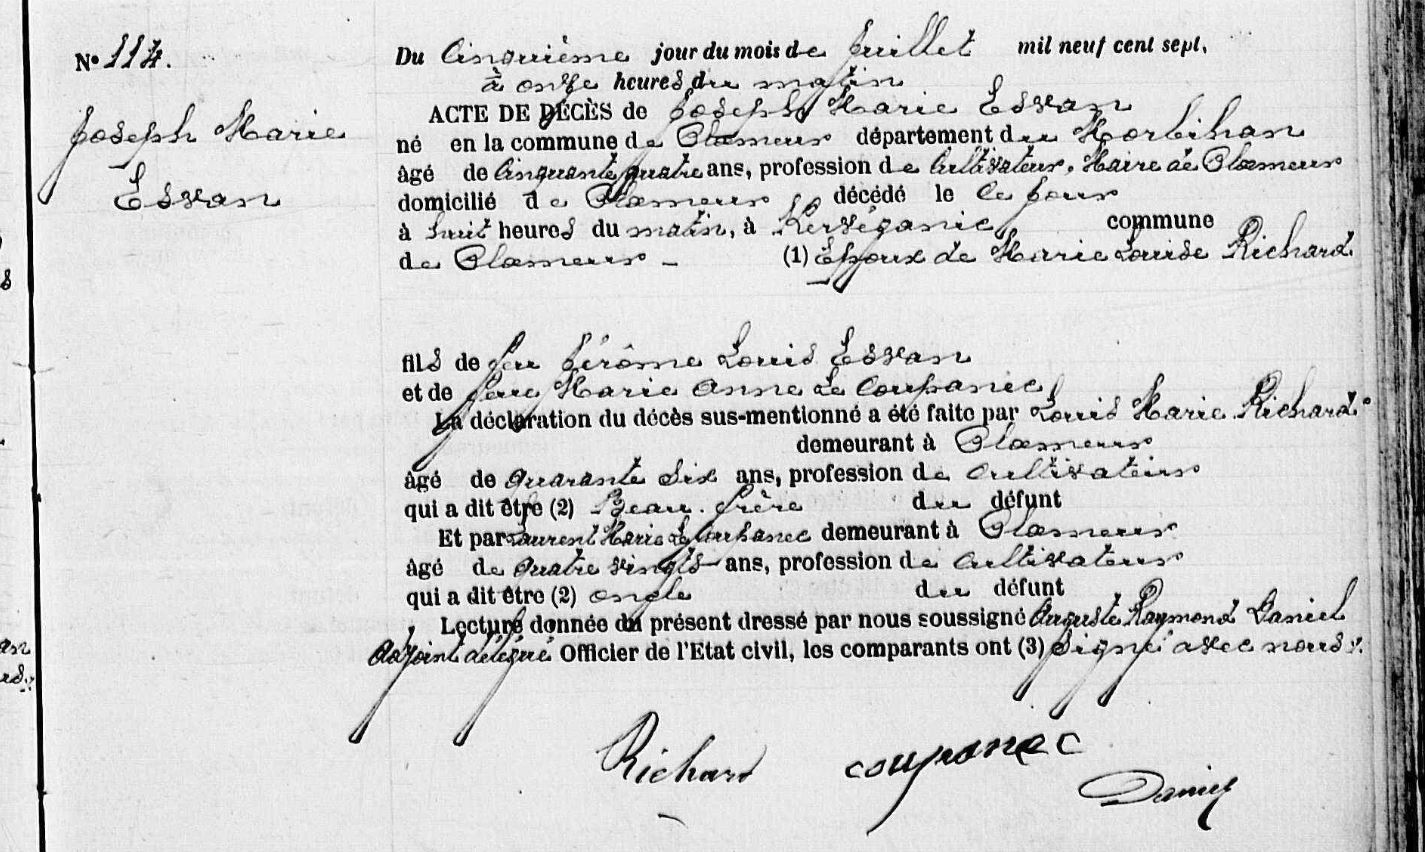 N° 114.
Joseph Marie
Esvan
Du Cinquième jour du mois de Juillet mil neuf cent sept,
à onze heures du matin
ACTE DE DÉCÈS de Joseph Marie Esvan
né en la commune de Plœmeur département du Morbihan
âgé de Cinquante quatre ans, profession de Cultivateur, Maire de Plœmeur
domicilié de Plœmeur décédé le ce jour
à huit heures du matin, à Kervéganic commune
de Plœmeur - (1) Époux de Marie Louise Richard
fils de feu Jérôme Louis Esvan
et de feue Marie Anne Le Coupanec
La déclaration du décès sus-mentionné a été faite par Louis Marie Richard
demeurant à Plœmeur
âgé de quarante six ans, profession de Cultivateur
qui a dit être (2) Beau-frère du défunt
Et par Laurent Marie Le Couhanec demeurant à Plœmeur
âgé de quatre vingts ans, profession de Cultivateur
qui a dit être (2) oncle du défunt
Lecture donnée du présent dressé par nous soussigné Auguste Raymond Daniel
Adjoint délégué Officier de l'Etat civil, les comparants ont (3) Signé avec nous.
Richard coupanec
Daniel